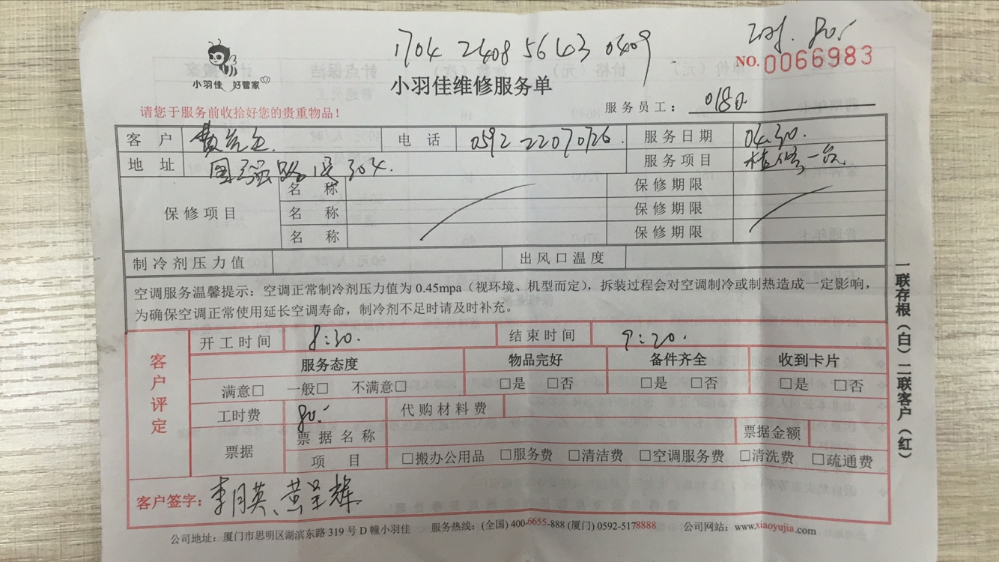 1704 2408 5643 0409
80.-
NO.0066983
小羽佳 好管家
小羽佳维修服务单
请您于服务前收拾好您的贵重物品!
服务员工:
客户 电话 0592 2207026. 服务日期 04.30.
地址 国强路 304. 服务项目 一次
保修项目 名称 保修期限
名称 保修期限
名称 保修期限
制冷剂压力值 出风口温度
空调服务温馨提示:空调正常制冷剂压力值为 0.45mpa(视环境、机型而定),拆装过程会对空调制冷或制热造成一定影响,
为确保空调正常使用延长空调寿命,制冷剂不足时请及时补充。
开工时间 8:20. 结束时间 9:20.
客户评定
服务态度 物品完好 备件齐全 收到卡片
满意□ 一般□ 不满意□ □是 □否 □是 □否 □是 □否
工时费 80.- 代购材料费
票据 票据名称 票据金额
项目 □搬办公用品 □服务费 □清洁费 □空调服务费 □清洗费 □疏通费
客户签字:李月英、黄呈辉
公司地址:厦门市思明区湖滨东路 319 号 D 幢小羽佳 服务热线:(全国) 400-6655-888 (厦门) 0592-5178888 公司网站:www.xiaoyujia.com
一联存根(白)二联客户(红)